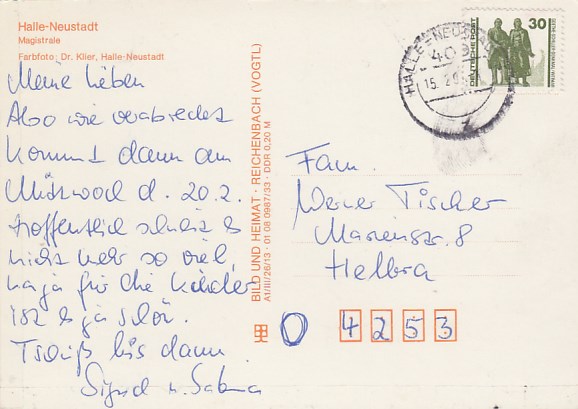 Halle-Neustadt
Magistrale
Farbfoto: Dr. Klier, Halle-Neustadt
Meine Lieben
Also wie verabredet
kommt dann am
Mittwoch d. 20.2.
hoffentlich schneit es
nicht mehr so viel,
na ja für die Kinder
ist es ja schön.
Tschüß bis dann
Sigrid u. Sabina
BILD UND HEIMAT · REICHENBACH (VOGTL)
A1/III/26/13 · 01 08 0987/33 · DDR 0,20 M
HALLE-NEUSTADT
40
15. 2. 9
30
DEUTSCHE POST
Fam.
Werner Fischer
Marienstr. 8
Helbra
O 4253